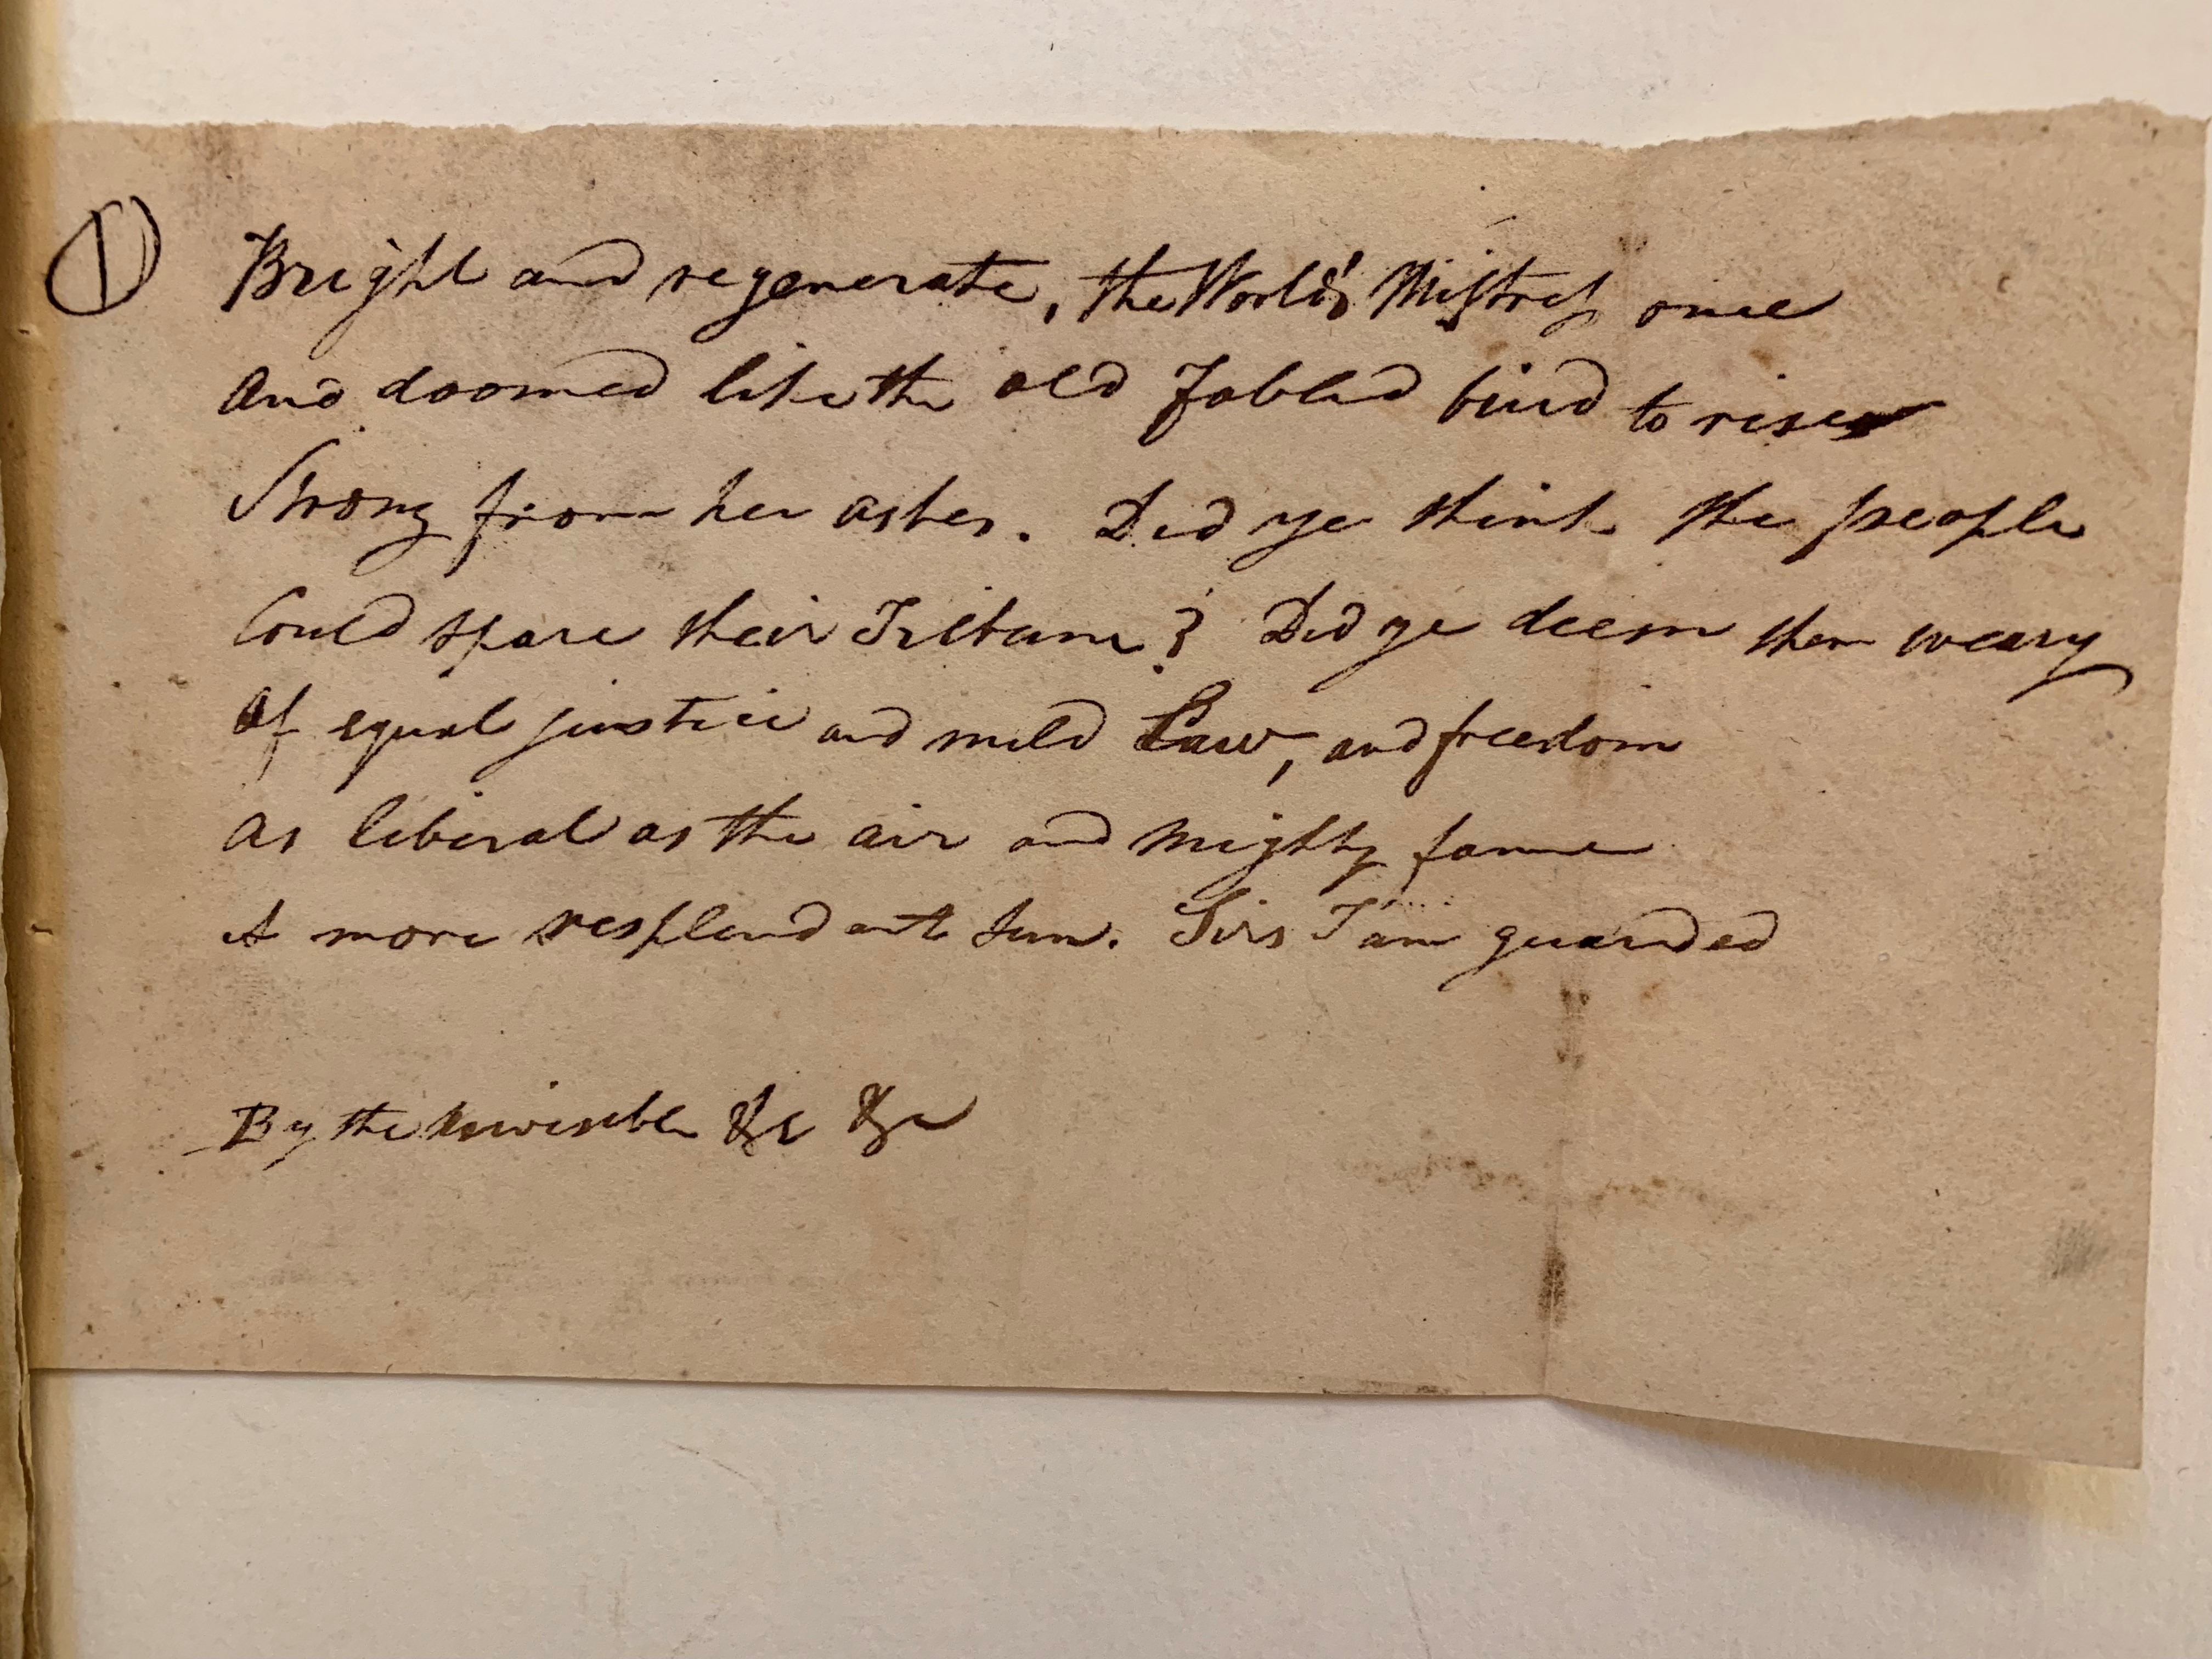 ① Bright and regenerate, the World's Mistress once
And doomed like the old Fabled bird to rise
Strong from her ashes. Did ye think the people
Could spare their Tribune? Did ye deem them weary
Of equal justice and mild Law, and freedom
As liberal as the air and mighty fame
A more resplendant Sun. Sirs I am guarded
By the invisible &c &c